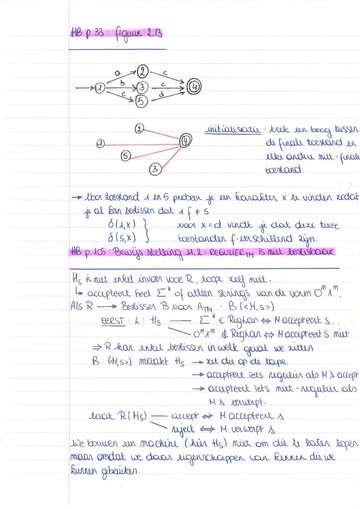 HB p.33 : figuur 2.13
a 2 c
1 b 3 c 4
c 5 d
2
1 4
5
3
initialisatie : trek een boog tussen
de finale toestand en
elke andere niet-finale
toestand.
→ Voor toestand 1 en 5 probeer je een karakter x te vinden zodat
je al kan beslissen dat 1 f ≠ 5
δ(1,x) voor x=d vindt je dat deze twee
δ(5,x) toestanden f-verschillend zijn
HB p.105 : Bewijs stelling 4.2 : REGULIER_TM is niet beslisbaar
H_s is niet enkel invoer voor R, loopt zelf niet.
↳ accepteert heel Σ* of alleen strings van de vorm 0^n 1^n.
Als R → Beslisser B voor A_TM : B(<M,s>)
EERST : L : H_s Σ* ∈ RegLan ⇔ M accepteert s.
0^n1^n ∉ RegLan ⇔ M accepteert s niet
⇒ R kan enkel beslissen in welk geval we zitten
B : (<M,s>) maakt H_s → zet die op de tape
→ accepteert iets regulier als M s accept
→ accepteert iets niet-regulier als
M s verwerpt.
laat R(H_s) accept ⇔ M accepteert s
reject ⇔ M verwerpt s
We bouwen een machine (hier H_s) niet om die te laten lopen
maar omdat we daar eigenschappen van kennen die we
kunnen gebruiken.